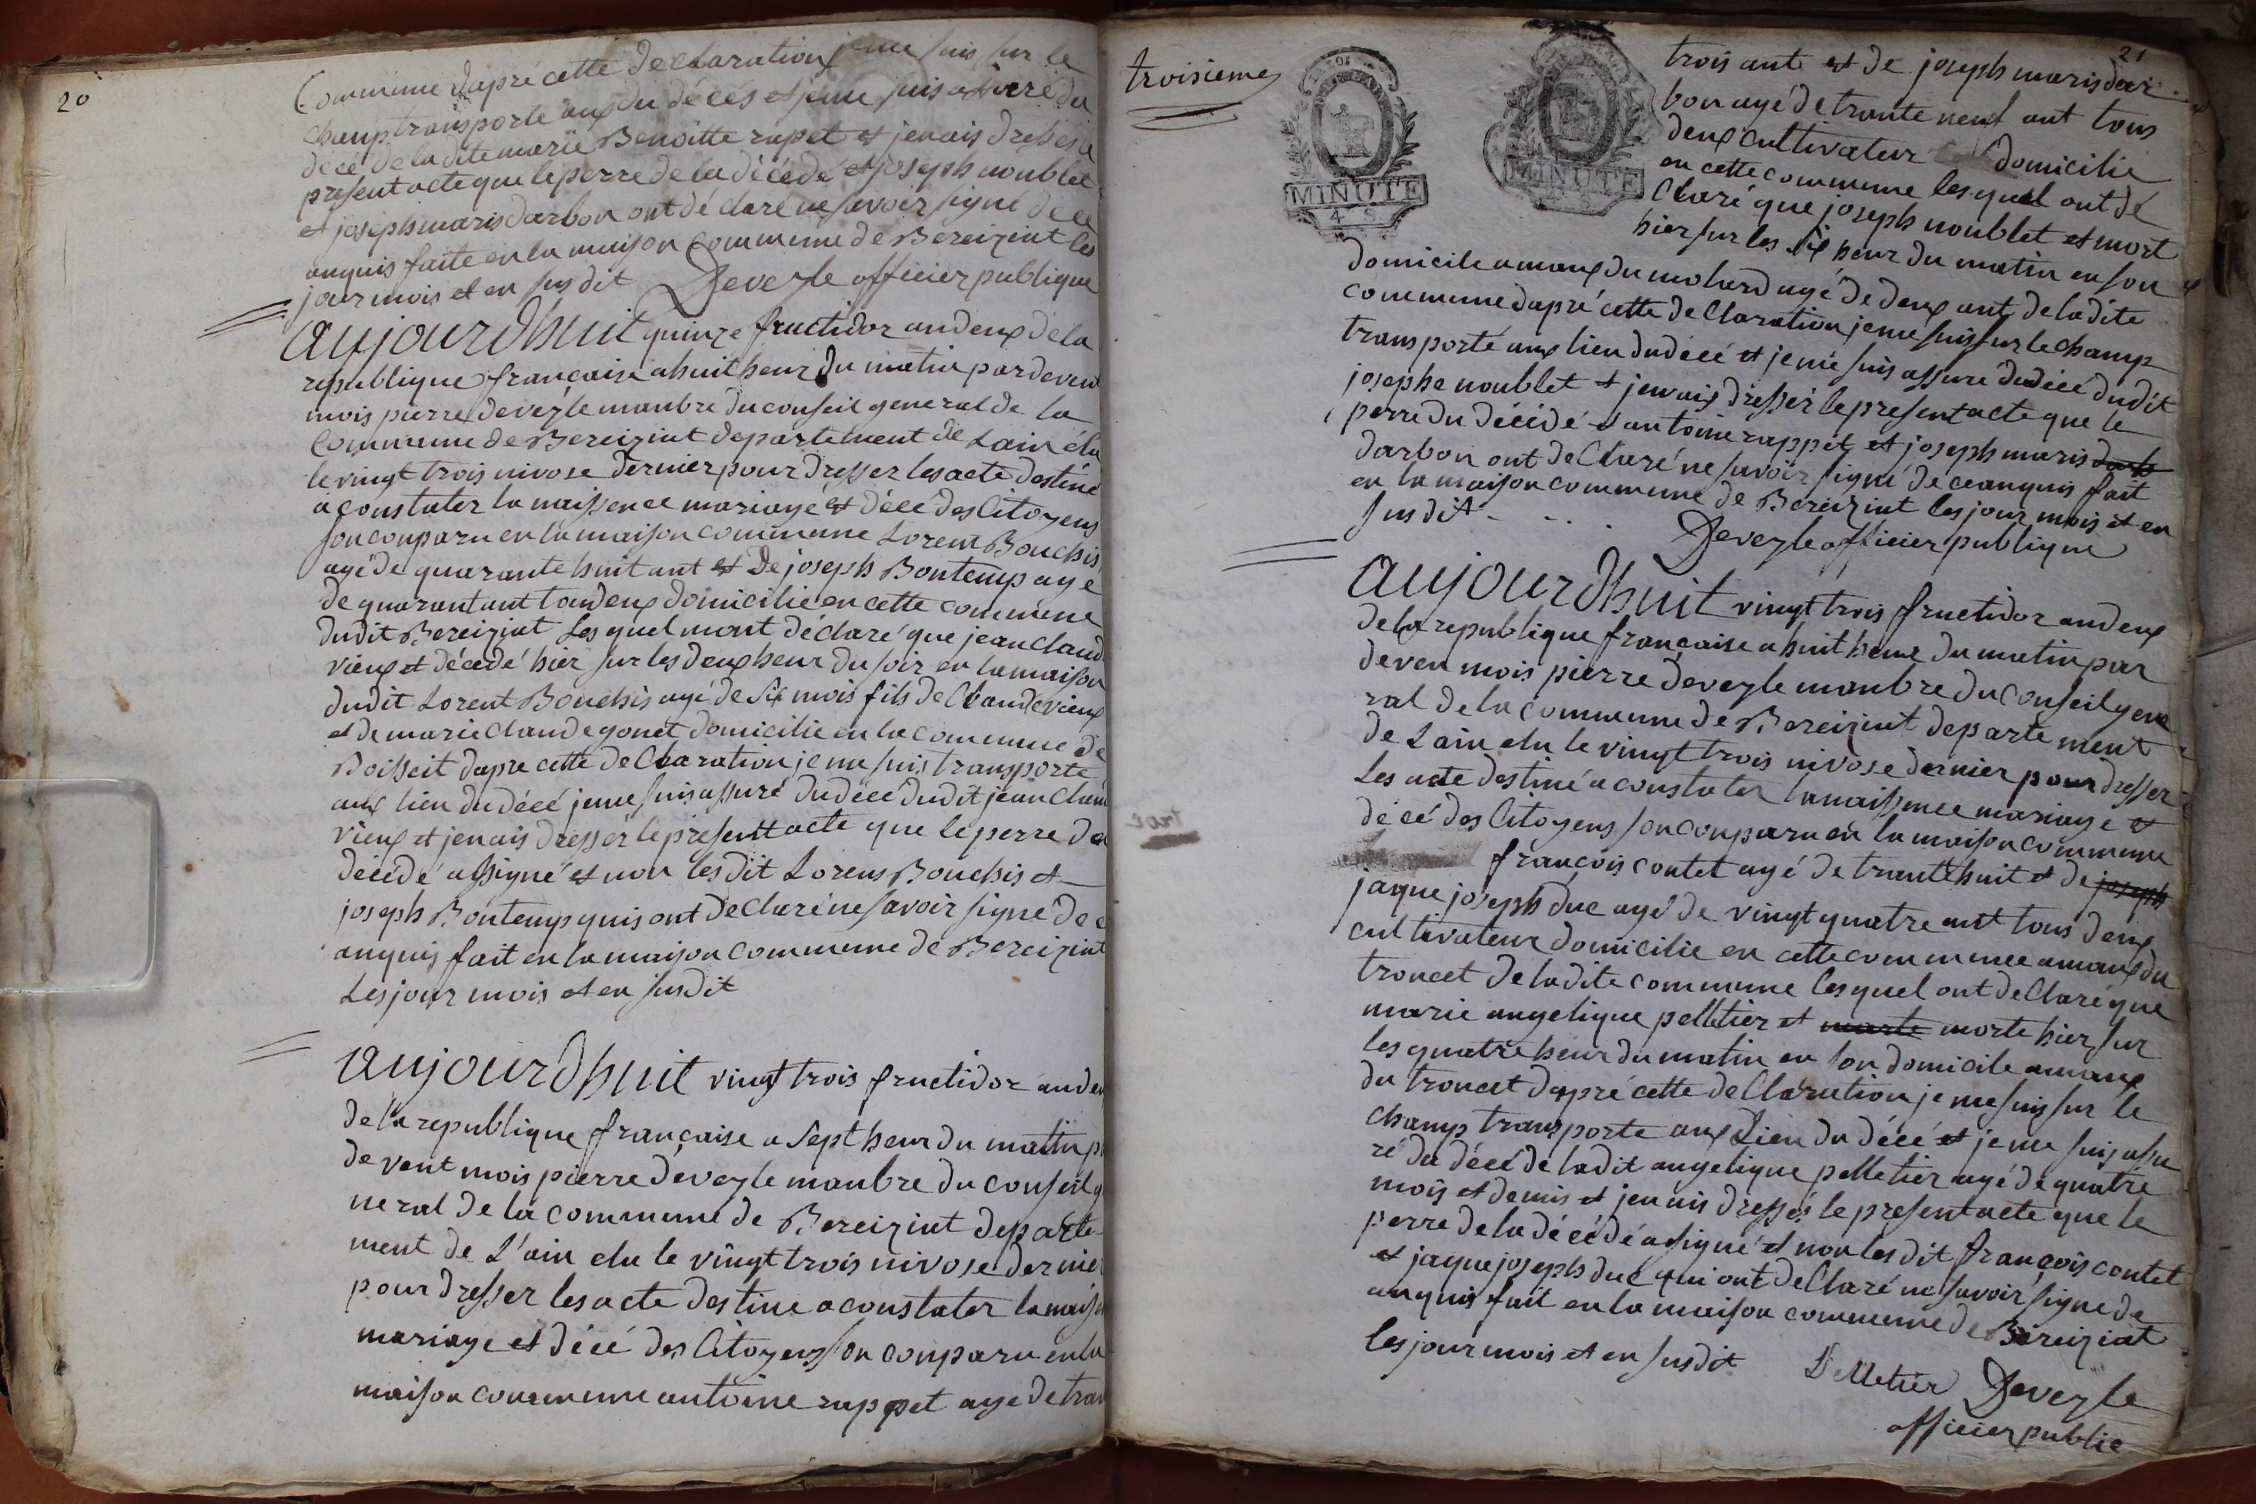 20
Commune dapré cette declaration je me suis sur le
champ transporte aux du décés et je me suis assuré du
décé de la dite marie Benoitte rapet et je nais dressé le
present acte que le perre de la décédé et joseph noublet
et joseph maris darbon ont dé claré ne savoir signé de ce
anquis faite en la maison commune de Bereiziat les
jour mois et en sus dit Deveyle officier publique
aujourdhuit quinze fructidor an deux de la
republique française a huit heur du matin par devent
mois pierre deveyle manbre du conseil general de la
Commune de Bereiziat departement de Lain élu
le vingt trois nivose dernier pour dresser les acte destiné
a constater la naissence mariage et décé des Citoyens
son conparu en la maison commune Lorent Bouchis
agé de quarante huit ant et de joseph Bontemp age
de quarant ant tou deux domicilié en cette commune
dudit Bereiziat Les quel mont déclaré que jean claud
vieux et décedé hier sur les deux heur du soir en la maison
dudit Lorent Bouchis agé de six mois fils de Claude vieux
et de marie claude gonet domicilié en la commune de
Boisseit dapre cette declaration je me suis transporte
aux lieu du décé je me suis assuré du décé dudit jean claud
vieux et je nais dresser le present acte que le perre de
décédé a signé et non les dit Lorens Bouchis et
joseph Bontemp quis ont declaré ne savoir signe de c
anquis fait en la maison commune de Bereiziat
Les jour mois et en susdit
aujourdhuit vingt trois fructidor an deu
de la republique française a sept heur du matin p
de vent mois pierre deveyle manbre du conseil g
neral de la commune de Bereiziat departe
ment de L'ain elu le vingt trois nivose dernier
pour dresser les acte destine a constater la naiss
mariage et décé des Citoyens son conparu en la
maison commune antoine rappet age de tran
21
troisieme
MINUTE
4 S
MINUTE
trois ant et de joseph maris dar
bon agé de trante neuf ant tous
deux cultivateur domicilie
en cette commune les quel ont dé
Claré que joseph noublet et mort
hier sur les six heur du matin en son
domicile a maux du molard agé de deux ant de la dite
commune dapré cette declaration je me suis sur le champ
transporté aux lieu du décé et je me suis assure du décé dudit
josephe noublet et je nais dresser le present acte que le
perre du décédé et antoine rappet et joseph maris darb
darbon ont declaré ne savoir signé de ce anquis fait
en la maison commune de Bereiziat les jour mois et en
susdit Deveyle officier publique
aujourdhuit vingt trois fructidor an deux
de la republique française a huit heur du matin par
deven mois pierre deveyle manbre du conseil gene
ral de la commune de Bereiziat departe ment
de Lain elu le vingt trois nivose dernier pour dresser
Les acte destiné a constater la naissence mariage et
décé des Citoyens son conparu en la maison commune
françois contet agé de trante huit et de joseph
jaque joseph duc agé de vingt quatre ant tous deux
cultivateur domicilie en cette commune a maux du
troncet de la dite commune les quel ont declaré que
marie angelique pelletier et marte morte hier sur
les quatre heur du matin en son domicile a maux
du troncet dapré cette declaration je me suis sur le
champ transporte aux Lieu du décé et je me suis assu
ré du décé de la dit angelique pelletier agé de quatre
mois et demis et je nais dressés le present acte que le
perre de la décédé a signé et non les dit françois contet
et jaque joseph duc qui ont declaré ne savoir signe de
anquis fait en la maison commune de Bereiziat
les jour mois et en susdit Pelletier Deveyle
officier public